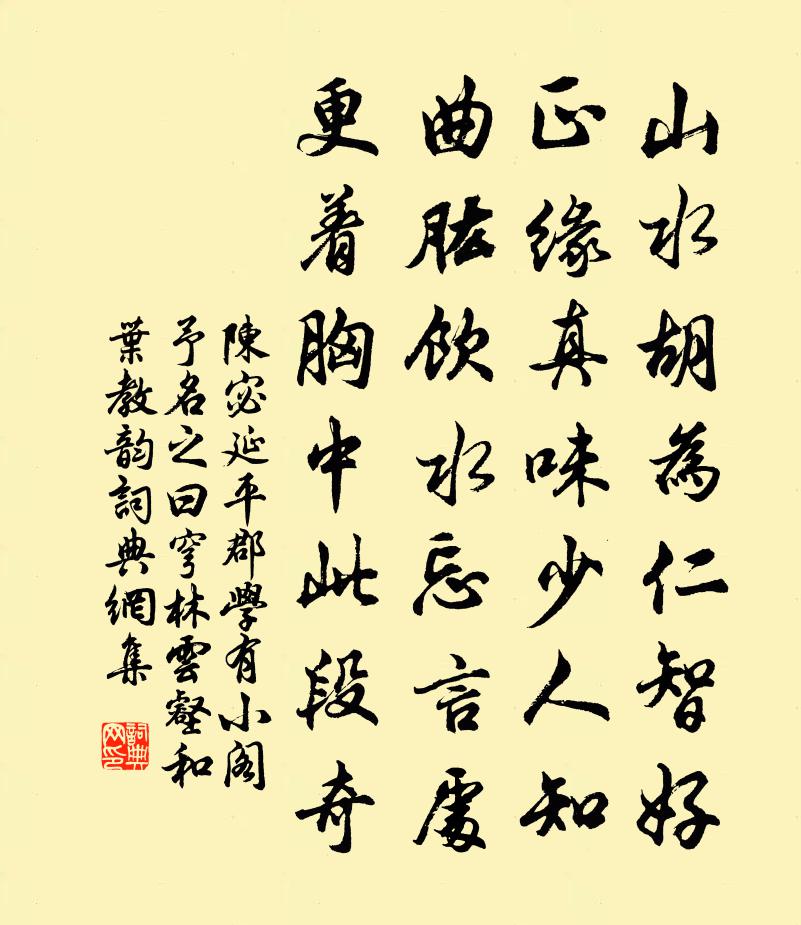 山水胡為仁智好
正緣真味少人知
曲肱飲水忘言處
更着胸中此段奇
陳宓延平郡學有小閣
予名之曰穹林雲壑和
葉教韵詞典網集
詞典
网印